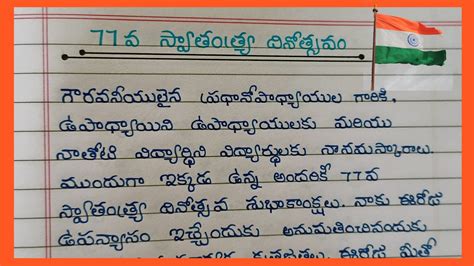 77వ స్వాతంత్ర్య దినోత్సవం
గౌరవనీయులైన ప్రధానోపాధ్యాయుల గారికి,
ఉపాధ్యాయిని ఉపాధ్యాయులకు మరియు
నాతోటి విద్యార్థిని విద్యార్థులకు నానమస్కారాలు.
ముందుగా ఇక్కడ ఉన్న అందరికీ 77వ
స్వాతంత్ర్య దినోత్సవ శుభాకాంక్షలు. నాకు ఈరోజు
ఉపన్యాసం ఇచ్చేందుకు అనుమతించినందుకు
కృతజ్ఞతలు. ఈరోజు మీతో